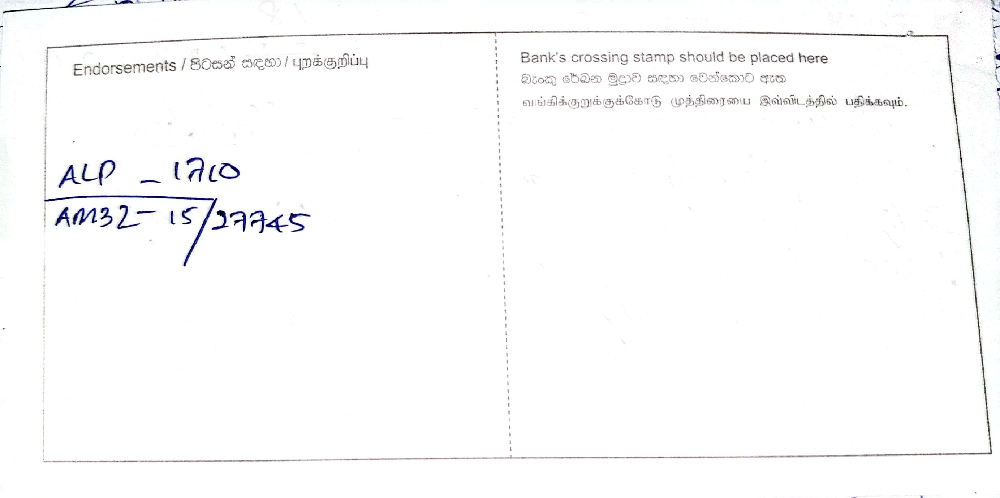 Endorsements / පිටසන් සඳහා / புறக்குறிப்பு
ALP - 1710
AM32 - 15/27745
Bank's crossing stamp should be placed here
බැංකු රේඛන මුද්‍රාව සඳහා වෙන්කොට ඇත
வங்கிக்குறுக்குக்கோடு முத்திரையை இவ்விடத்தில் பதிக்கவும்.